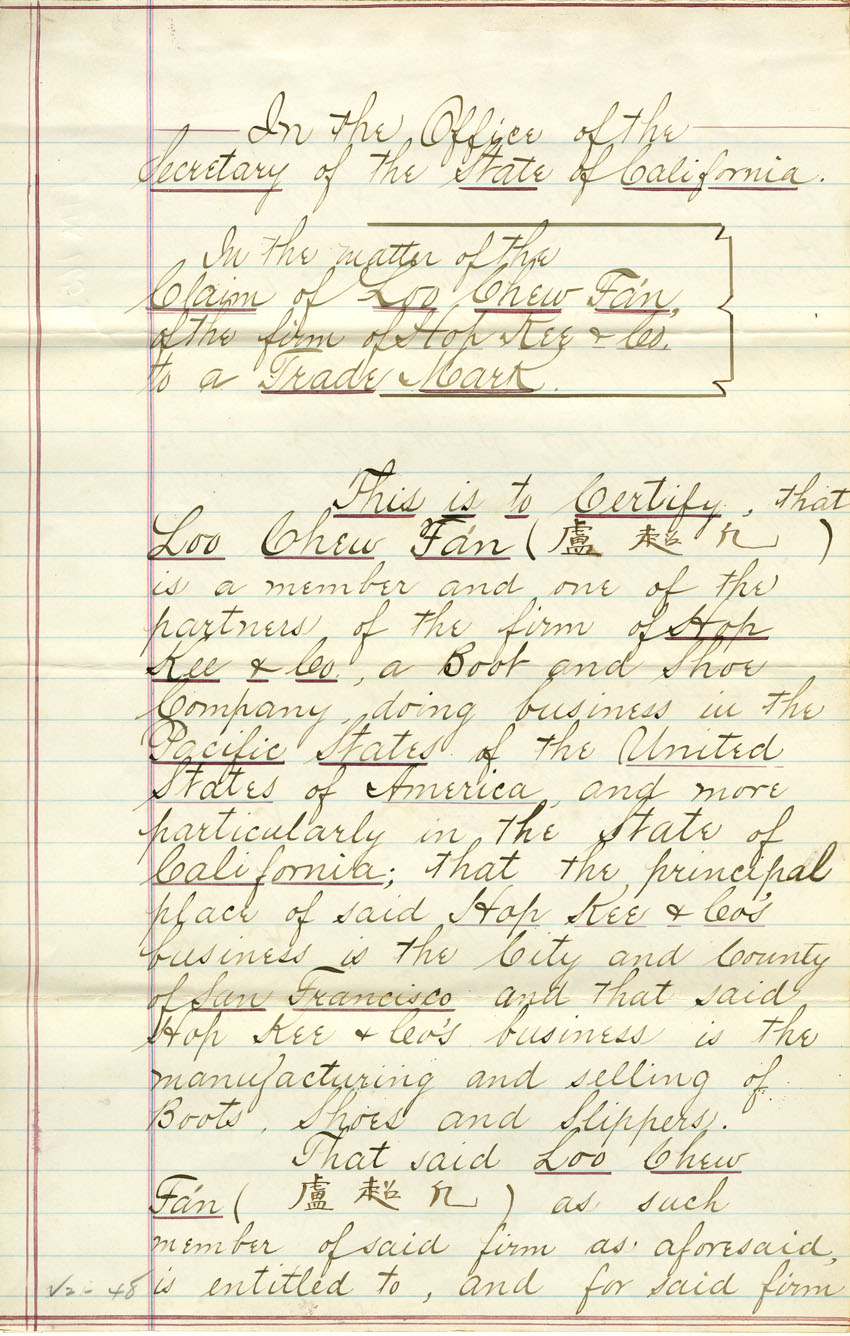 In the Office of the
Secretary of the State of California.
In the matter of the
Claim of Loo Chew Fán,
of the firm of Hop Kee & Co.
to a Trade Mark.
This is to Certify, that
Loo Chew Fán (盧 超 凡)
is a member and one of the
partners of the firm of Hop
Kee & Co., a Boot and Shoe
Company, doing business in the
Pacific States of the United
States of America, and more
particularly in the State of
California; that the principal
place of said Hop Kee & Co's
business is the City and County
of San Francisco and that said
Hop Kee & Co's business is the
manufacturing and selling of
Boots, Shoes and Slippers.
That said Loo Chew
Fán (盧 超 凡) as such
member of said firm as aforesaid,
is entitled to, and for said firm